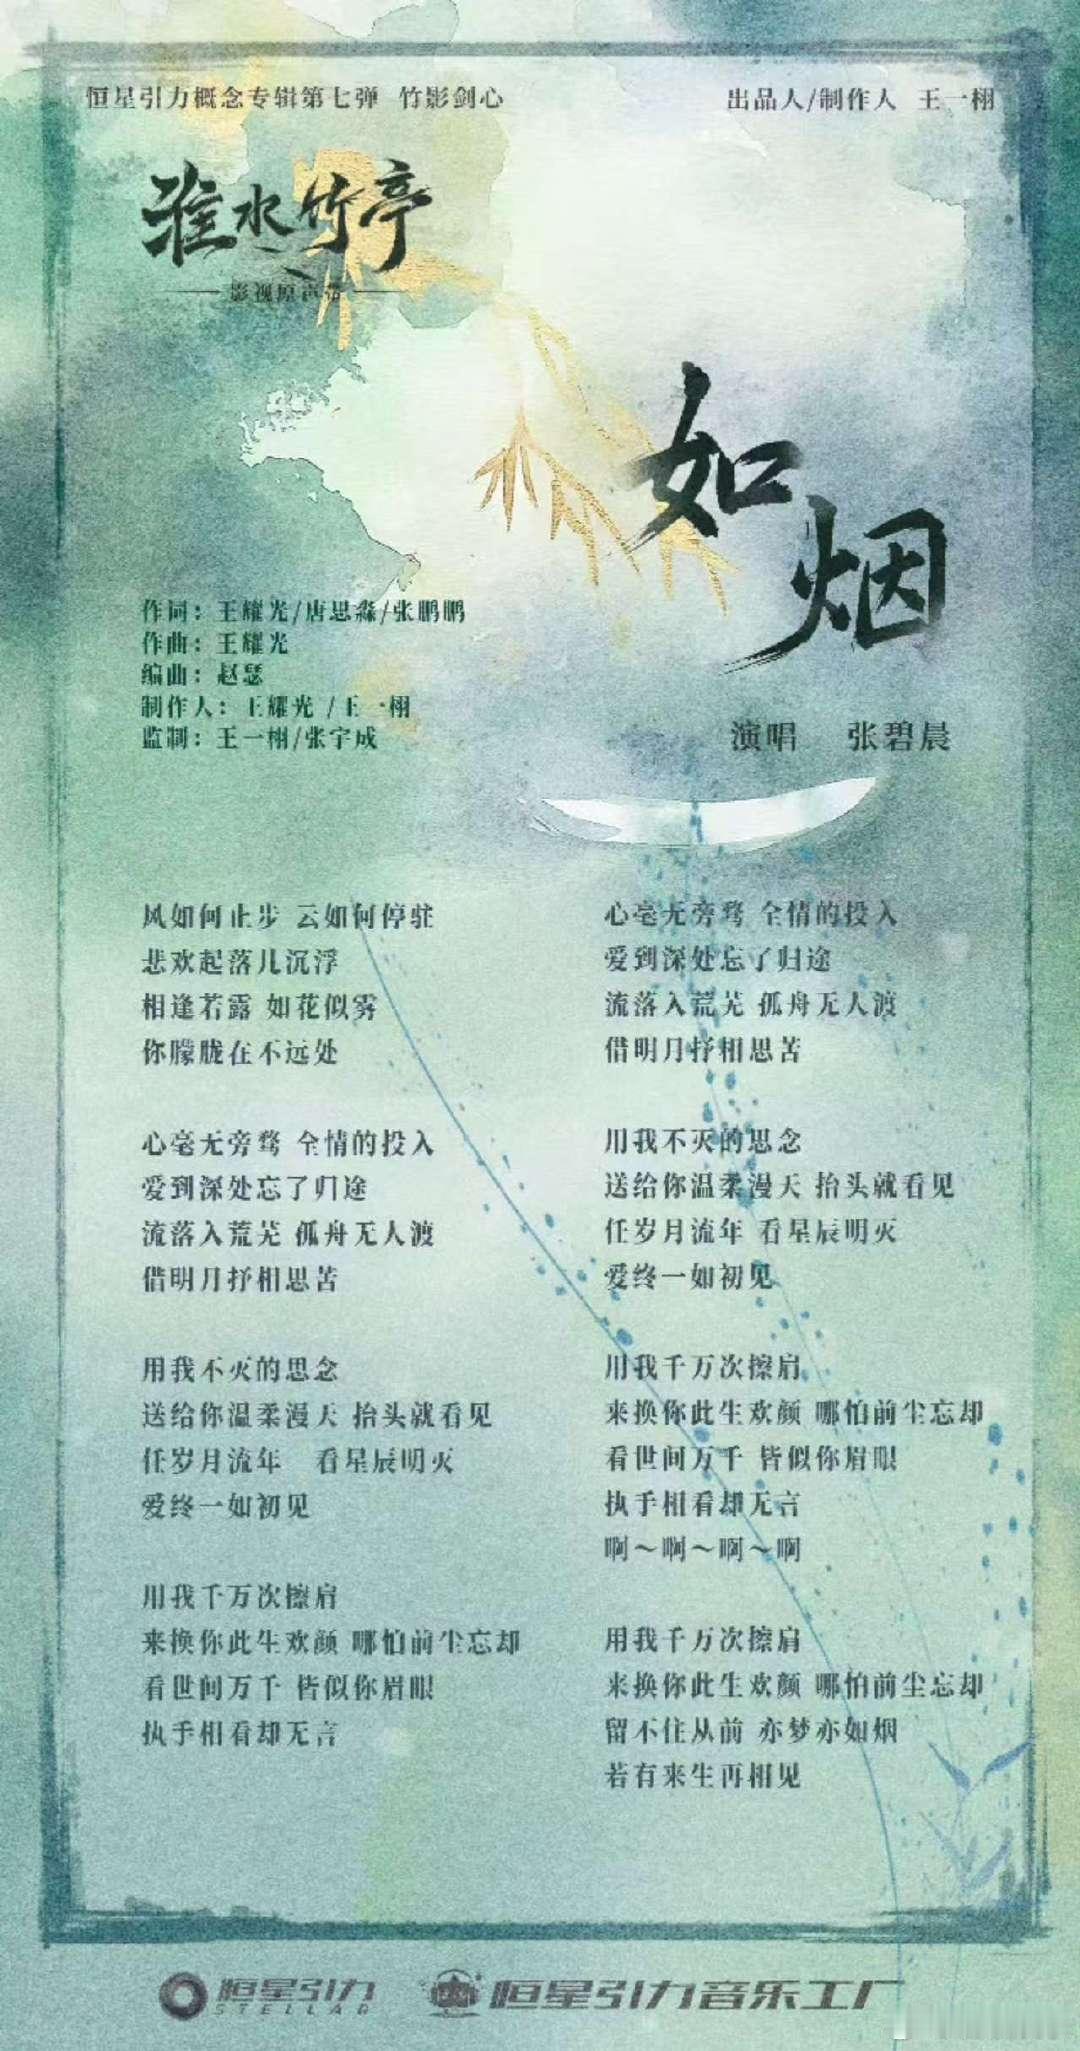 恒星引力概念专辑第七弹 竹影剑心
出品人/制作人 王一栩
淮水竹亭
影视原声带
如烟
作词：王耀光/唐思淼/张鹏鹏
作曲：王耀光
编曲：赵瑟
制作人：王耀光 /王一栩
监制：王一栩/张宇成
演唱 张碧晨
风如何止步 云如何停驻
悲欢起落几沉浮
相逢若露 如花似雾
你朦胧在不远处
心毫无旁骛 全情的投入
爱到深处忘了归途
流落入荒芜 孤舟无人渡
借明月抒相思苦
用我不灭的思念
送给你温柔漫天 抬头就看见
任岁月流年 看星辰明灭
爱终一如初见
用我千万次擦肩
来换你此生欢颜 哪怕前尘忘却
看世间万千 皆似你眉眼
执手相看却无言
心毫无旁骛 全情的投入
爱到深处忘了归途
流落入荒芜 孤舟无人渡
借明月抒相思苦
用我不灭的思念
送给你温柔漫天 抬头就看见
任岁月流年 看星辰明灭
爱终一如初见
用我千万次擦肩
来换你此生欢颜 哪怕前尘忘却
看世间万千 皆似你眉眼
执手相看却无言
啊～啊～啊～啊
用我千万次擦肩
来换你此生欢颜 哪怕前尘忘却
留不住从前 亦梦亦如烟
若有来生再相见
恒星引力
STELLAR
恒星引力音乐工厂